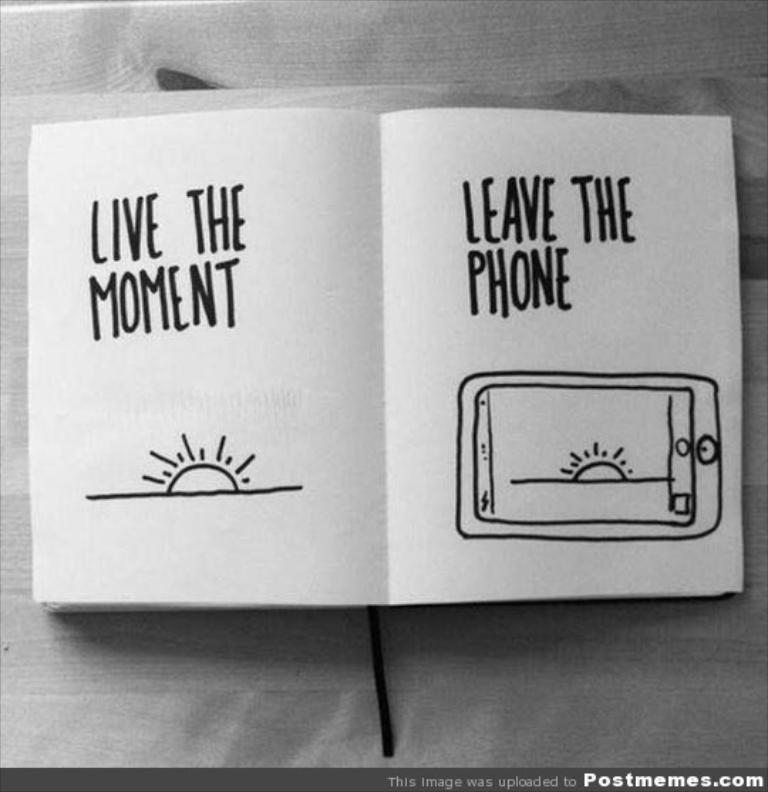 LIVE THE
MOMENT
LEAVE THE
PHONE
This image was uploaded to Postmemes.com